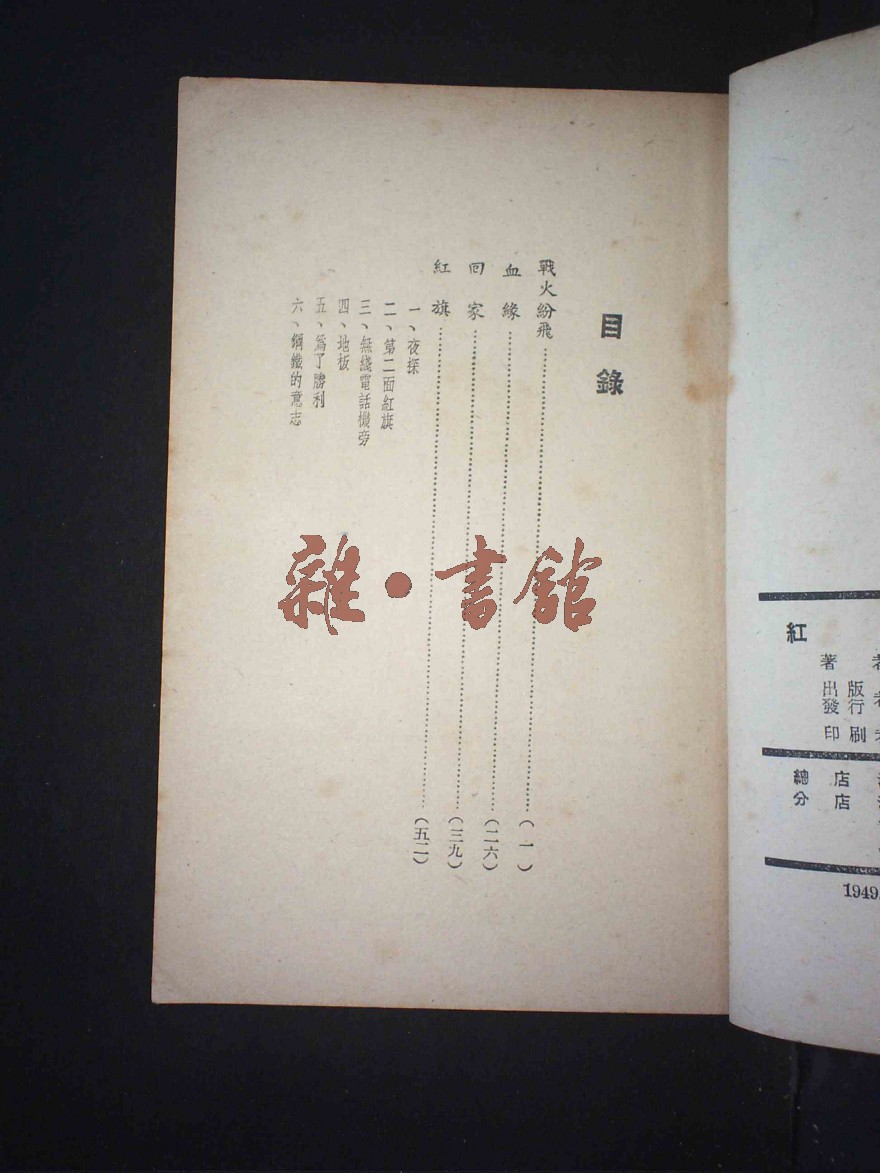 目錄
戰火紛飛……(一)
血緣……(二六)
回家……(三九)
紅旗……(五二)
一、夜探
二、第二面紅旗
三、無綫電話機旁
四、地板
五、爲了勝利
六、鋼鐵的意志
雜·書館
紅
著者
出版
發行者
印刷者
總店
分店
1949